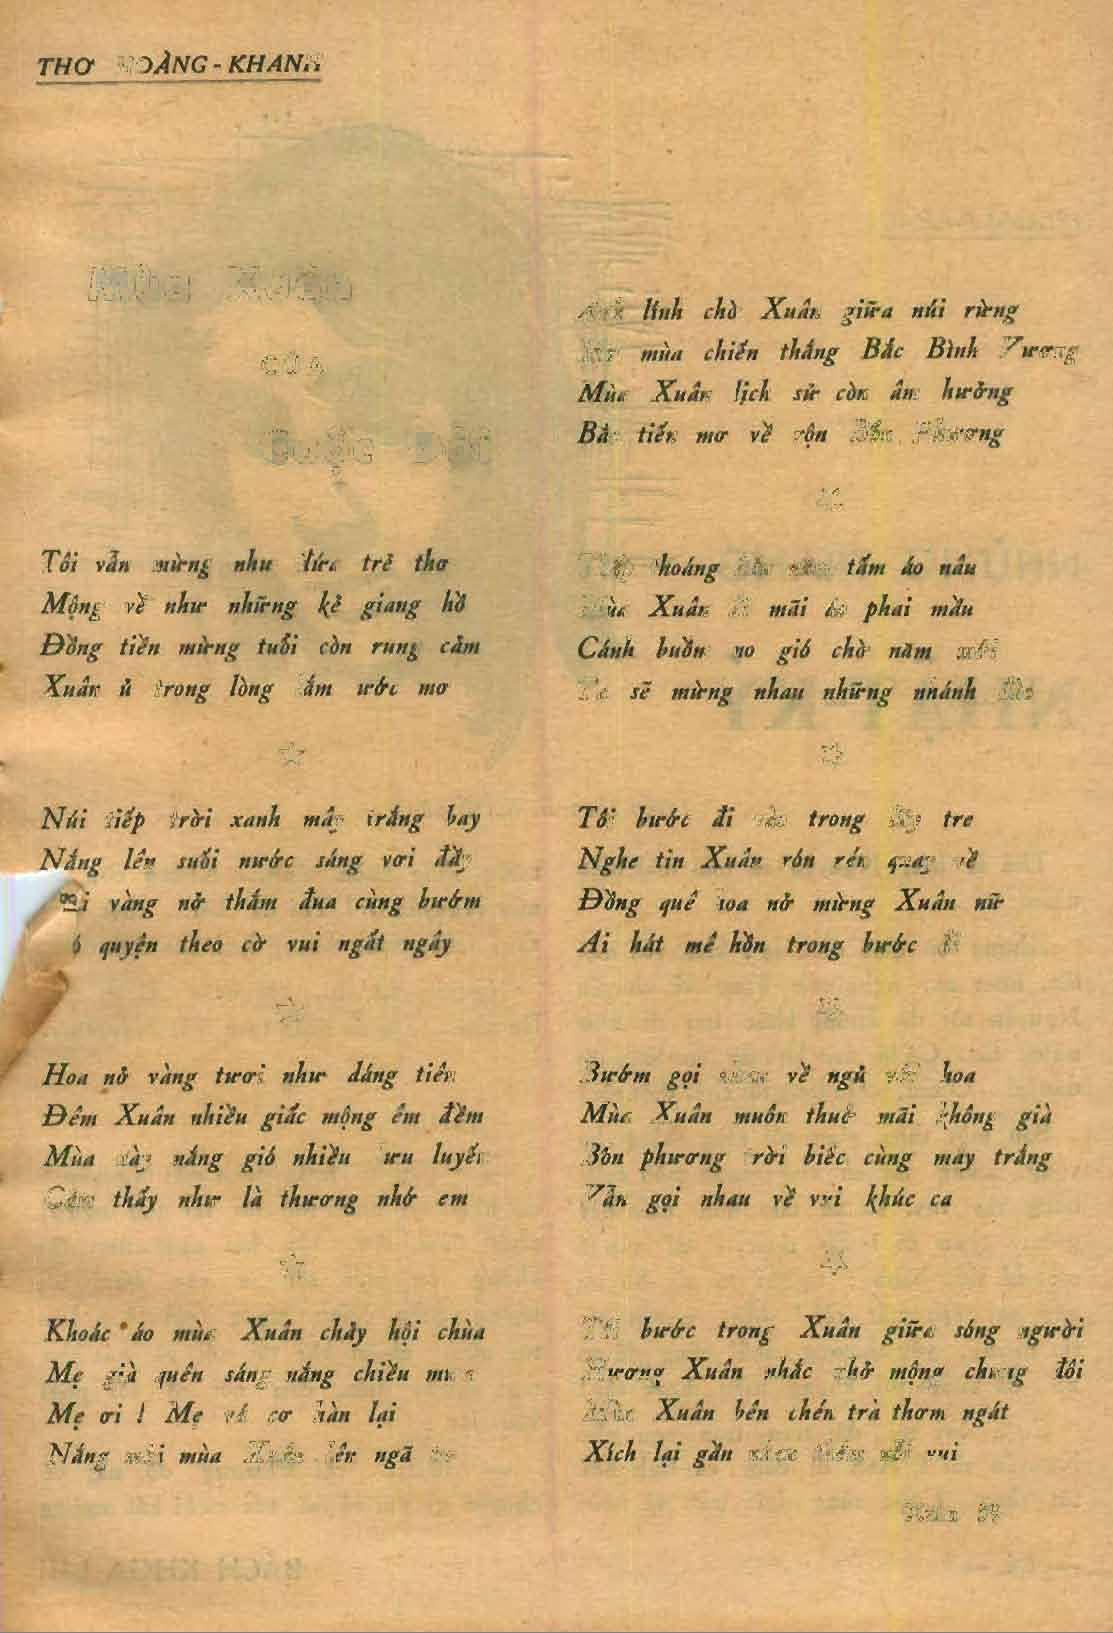 THƠ HOÀNG - KHANH
Mùa Xuân
CỦA
Cuộc Đời
Tôi vẫn mừng như đứa trẻ thơ
Mộng về như những kẻ giang hồ
Đồng tiền mừng tuổi còn rung cảm
Xuân ủ trong lòng lắm ước mơ
Núi tiếp trời xanh mây trắng bay
Nắng lên suối nước sáng vơi đầy
vàng nở thắm đua cùng bướm
quyện theo cờ vui ngất ngây
Hoa nở vàng tươi như dáng tiên
Đêm Xuân nhiều giấc mộng êm đềm
Mùa này nắng gió nhiều lưu luyến
Cảm thấy như là thương nhớ em
Khoác áo mùa Xuân chảy hội chùa
Mẹ già quên sáng nắng chiều mưa
Mẹ ơi ! Mẹ vá cơ hàn lại
Nắng mới mùa Xuân lên ngã
lính chờ Xuân giữa núi rừng
mùa chiến thắng Bắc Bình Vương
Mùa Xuân lịch sử còn âm hưởng
Bắc tiến mơ về rộn Bốn Phương
thoáng tấm áo nâu
Mùa Xuân đi mãi áo phai mầu
Cánh buồm no gió chờ năm mới
Ta sẽ mừng nhau những nhánh
Tôi bước đi vào trong lũy tre
Nghe tin Xuân rón rén quay về
Đồng quê hoa nở mừng Xuân nữ
Ai hát mê hồn trong bước đi
Bướm gọi nhau về ngủ với hoa
Mùa Xuân muôn thuở mãi không già
Bốn phương trời biếc cùng may trắng
Vẫn gọi nhau về vui khúc ca
Tôi bước trong Xuân giữa sóng người
Hương Xuân nhắc nhở mộng chung đôi
Mùa Xuân bên chén trà thơm ngát
Xích lại gần nhau thêm nỗi vui
Xuân 59